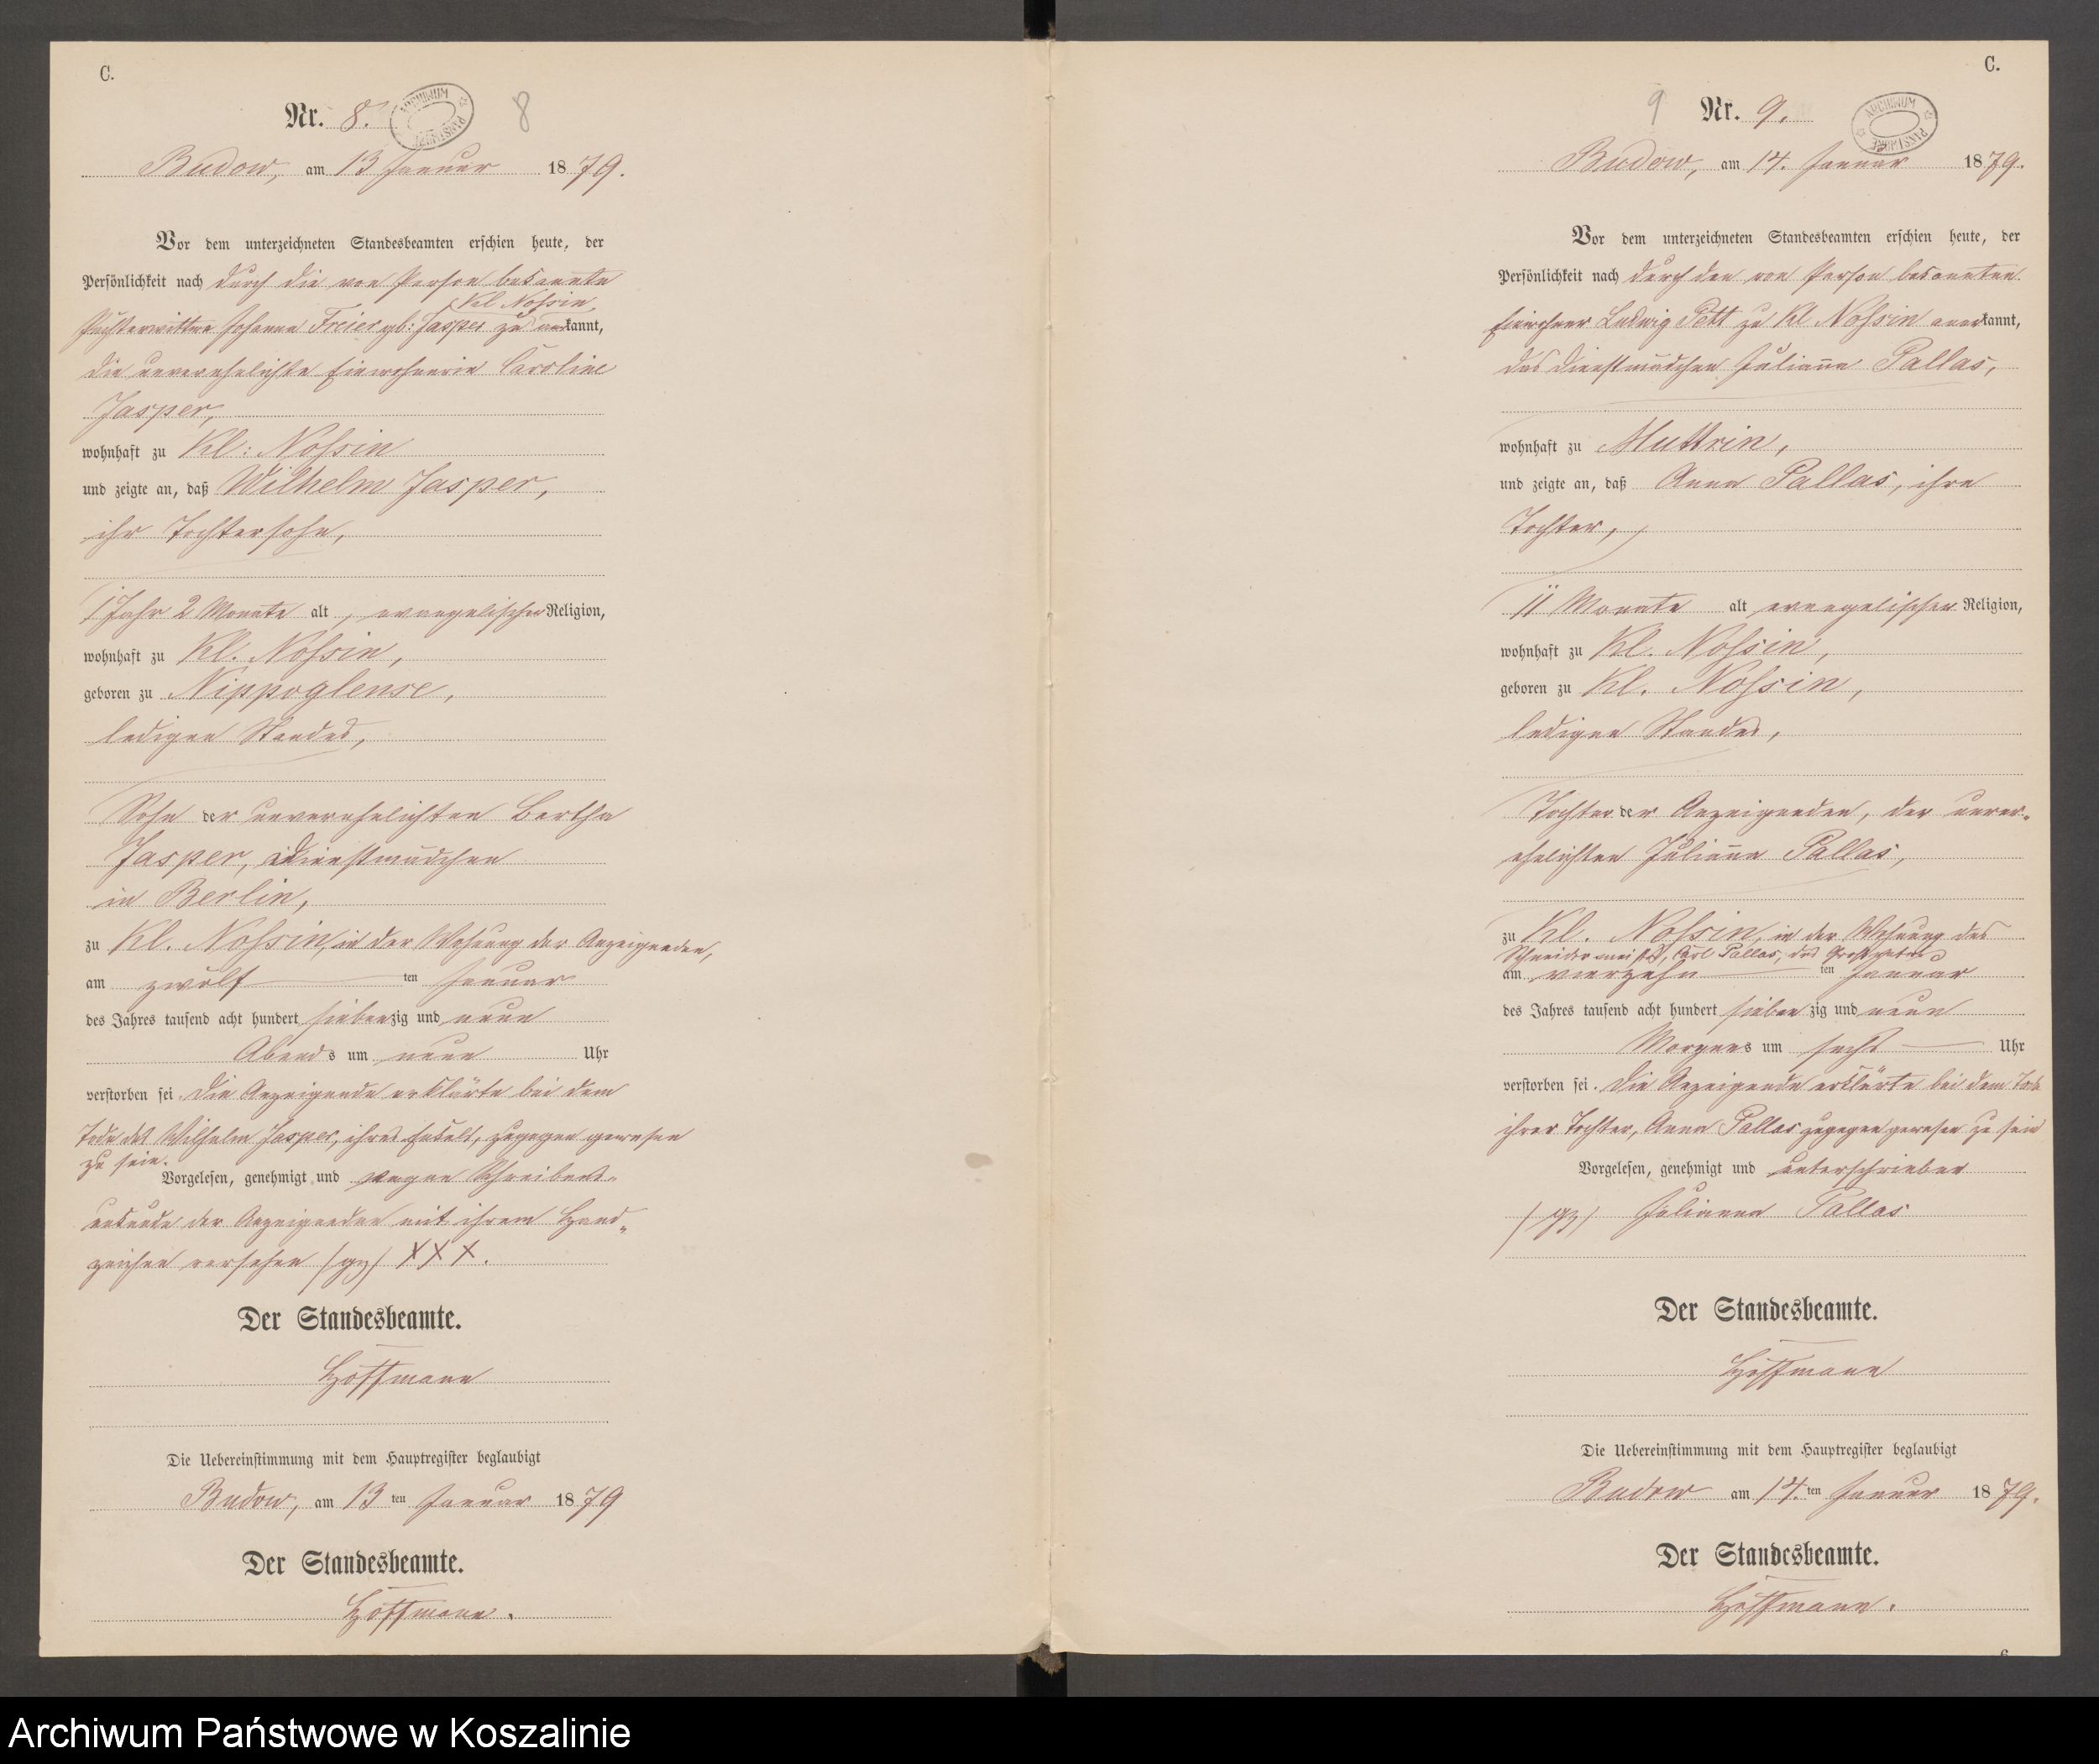 C.
Nr. 8.
8
ARCHIWUM
Budow, am 13 Januar 1879.
Vor dem unterzeichneten Standesbeamten erschien heute, der
Persönlichkeit nach durch die von Person bekannte
Kl Nossin
Johanna Freier gb: Jasper zu anerkannt,
die unverehelichte Einwohnerin Caroline
Jasper,
wohnhaft zu Kl: Nossin
und zeigte an, daß Wilhelm Jasper,
ihr Tochtersohn,
1 Jahr 2 Monate alt, evangelischer Religion,
wohnhaft zu Kl. Nossin,
geboren zu Nippoglense,
ledigen Standes,
Sohn der unverehelichten Bertha
Jasper, Dienstmädchen
in Berlin,
zu Kl. Nossin, in der Wohnung der Anzeigenden,
am zwölf ten Januar
des Jahres tausend acht hundert siebenzig und neun
Abends um neun Uhr
verstorben sei. Die Anzeigende erklärte bei dem
Tode des Wilhelm Jasper, ihres Enkels, zugegen gewesen
zu sein.
Vorgelesen, genehmigt und wegen Schreibens-
unkunde der Anzeigenden mit ihrem Hand-
zeichen versehen (gz) XXX.
Der Standesbeamte.
Hoffmann
Die Uebereinstimmung mit dem Hauptregister beglaubigt
Budow, am 13 ten Januar 1879
Der Standesbeamte.
Hoffmann.
C.
9
Nr. 9.
ARCHIWUM
Budow, am 14. Januar 1879.
Vor dem unterzeichneten Standesbeamten erschien heute, der
Persönlichkeit nach durch den von Person bekannten
Einwohner Ludwig Pett zu Kl Nossin anerkannt,
das Dienstmädchen Julianna Pallas,
wohnhaft zu Muttrin,
und zeigte an, daß Anna Pallas, ihre
Tochter,
11 Monate alt evangelischer Religion,
wohnhaft zu Kl. Nossin,
geboren zu Kl. Nossin,
ledigen Standes,
Tochter der Anzeigenden, der unver-
ehelichten Julianna Pallas,
zu Kl. Nossin, in der Wohnung des
Schneidermeistrs, Carl Pallas, des Großvaters
am vierzehn ten Januar
des Jahres tausend acht hundert siebenzig und neun
Morgens um sechs Uhr
verstorben sei. Die Anzeigende erklärte bei dem Tode
ihrer Tochter, Anna Pallas zugegen gewesen zu sein
Vorgelesen, genehmigt und unterschrieben
(gz) Julianna Pallas
Der Standesbeamte.
Hoffmann
Die Uebereinstimmung mit dem Hauptregister beglaubigt
Budow am 14. ten Januar 1879.
Der Standesbeamte.
Hoffmann.
Archiwum Państwowe w Koszalinie